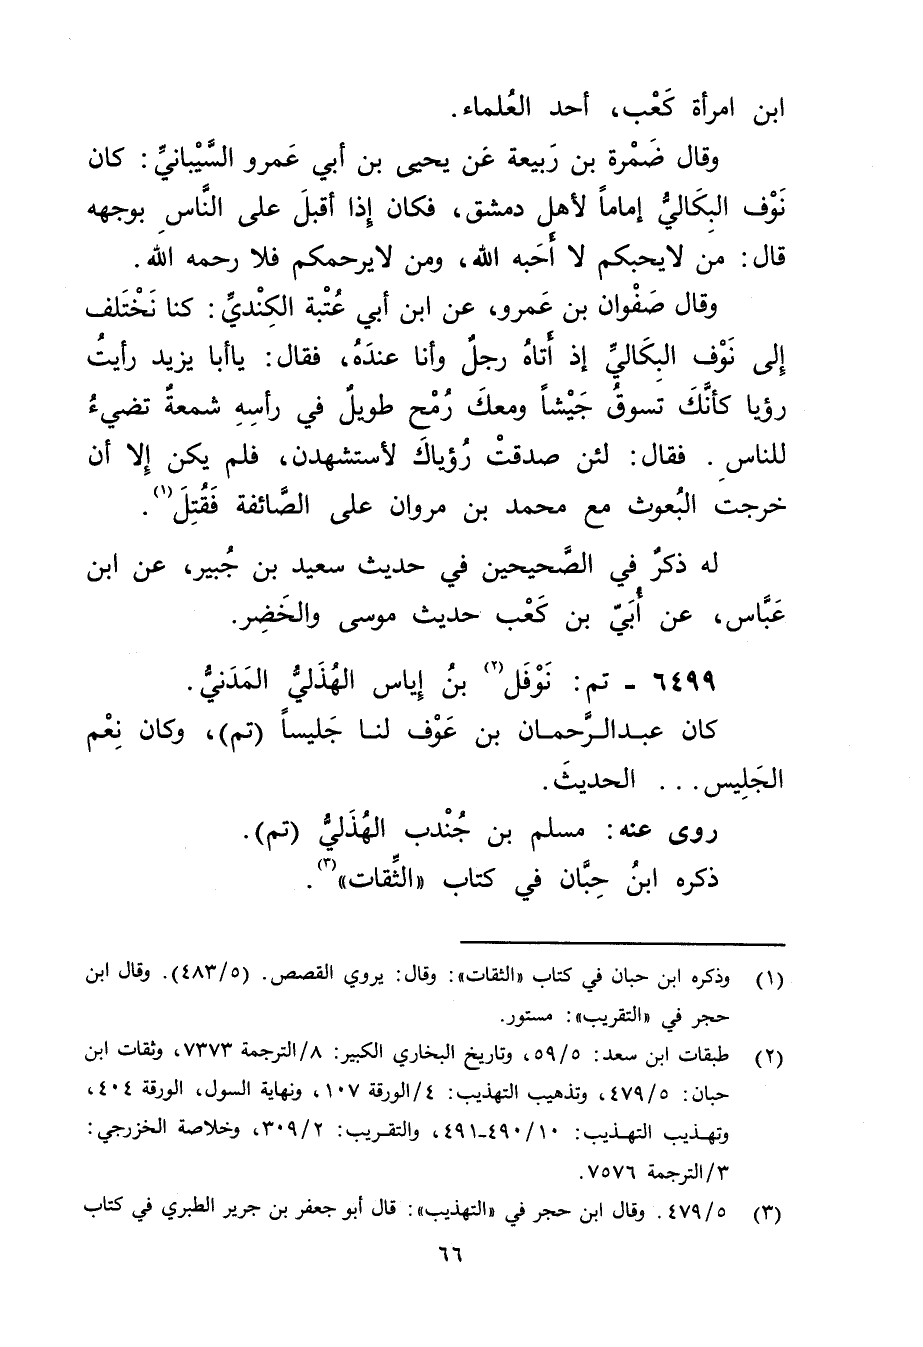 ابن امرأة كَعْب، أحد العُلماء.
وقال ضَمْرة بن رَبيعة عَن يحيى بن أبي عَمرو السَّيْبانيِّ: كان
نَوْف البِكَاليُّ إماماً لأهلِ دمشق، فكان إذا أقبلَ على النَّاسِ بوجهه
قال: من لايحبكم لا أَحَبه الله، ومن لايرحمكم فلا رحمه الله.
وقال صَفْوان بن عَمرو، عن ابن أبي عُتْبة الكِنْديِّ: كنا نَخْتَلف
إلى نَوْف البِكَاليِّ إذ أَتاهُ رجلٌ وأنا عندَهُ، فقال: ياأبا يزيد رأيتُ
رؤيا كأنَّكَ تسوقُ جَيْشاً ومعكَ رُمْح طويلٌ في رأسِهِ شمعةٌ تضيءُ
للناسِ. فقال: لئن صدقتْ رُؤياكَ لأستشهدن، فلم يكن إلا أن
خرجت البُعوث مع محمد بن مروان على الصَّائفة فَقُتِلَ(١).
له ذكرٌ في الصَّحيحين في حديث سعيد بن جُبير، عن ابن
عَبَّاس، عن أُبَيّ بن كَعْب حديث موسى والخَضِر.
٦٤٩٩ - تم: نَوْفَل(٢) بنُ إياس الهُذَليُّ المَدَنيُّ.
كان عبدالرَّحمان بن عَوْف لنا جَليساً (تم)، وكان نِعْم
الجَلِيس... الحديثَ.
روى عنه: مسلم بن جُنْدب الهُذَليُّ (تم).
ذكره ابنُ حِبَّان في كتاب «الثِّقات»(٣).
(١) وذكره ابن حبان في كتاب «الثقات»: وقال: يروي القصص. (٤٨٣/٥). وقال ابن
حجر في «التقريب»: مستور.
(٢) طبقات ابن سعد: ٥٩/٥، وتاريخ البخاري الكبير: ٨/الترجمة ٧٣٧٣، وثقات ابن
حبان: ٤٧٩/٥، وتذهيب التهذيب: ٤/الورقة ١٠٧، ونهاية السول، الورقة ٤٠٤،
وتهذيب التهذيب: ٤٩٠/١٠-٤٩١، والتقريب: ٣٠٩/٢، وخلاصة الخزرجي:
٣/الترجمة ٧٥٧٦.
(٣) ٤٧٩/٥. وقال ابن حجر في «التهذيب»: قال أبو جعفر بن جرير الطبري في كتاب
٦٦